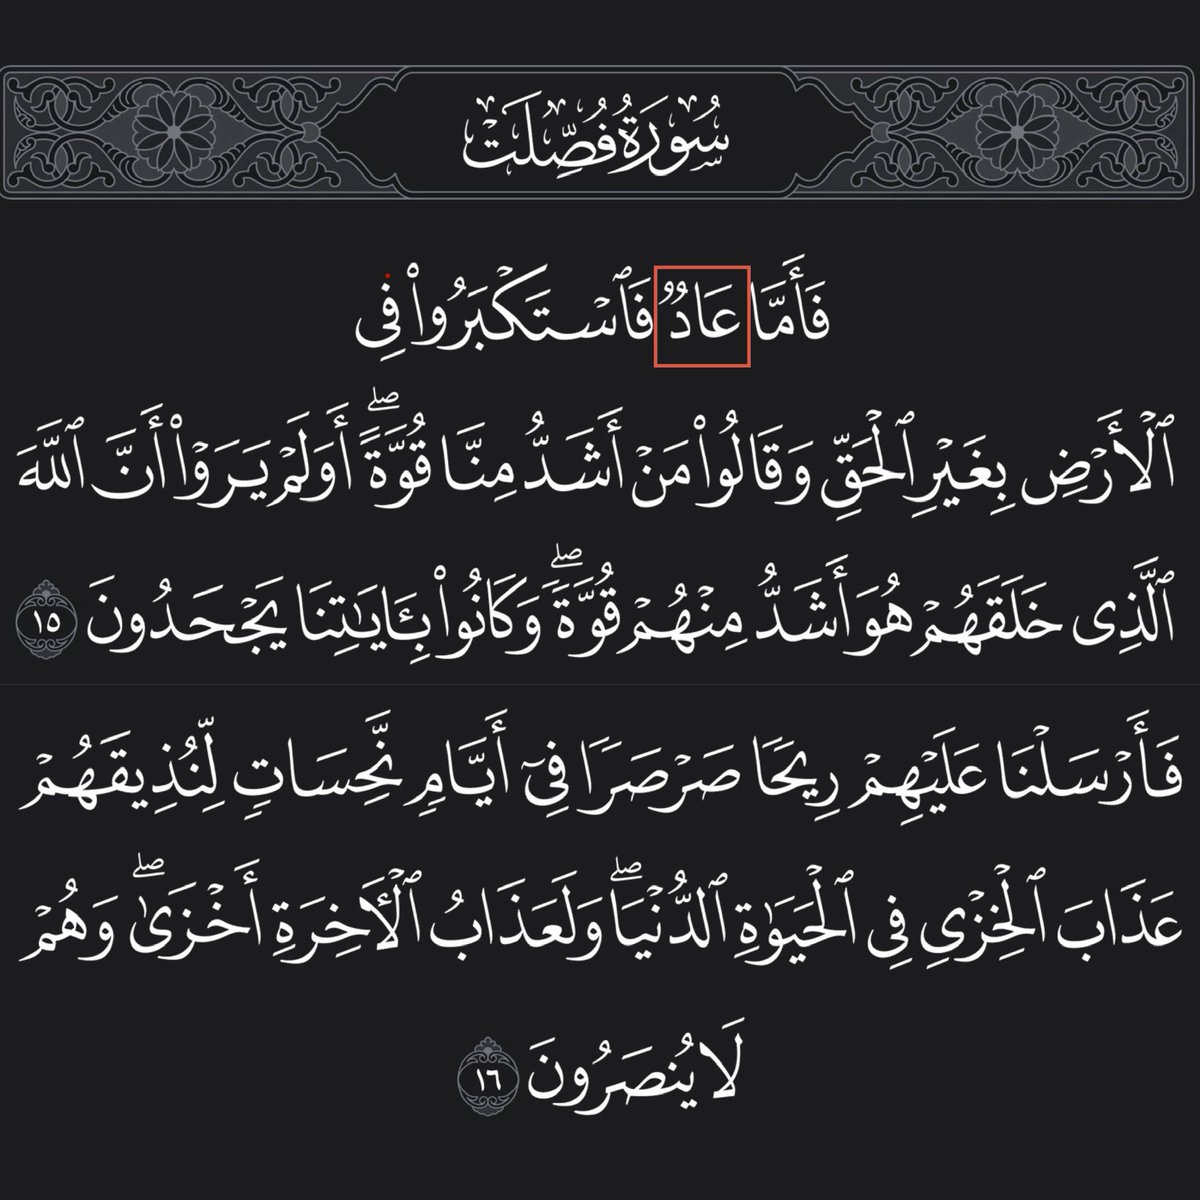 سُورَةُ فُصِّلَتْ
فَأَمَّا عَادٌ فَٱسْتَكْبَرُوا۟ فِى
ٱلْأَرْضِ بِغَيْرِ ٱلْحَقِّ وَقَالُوا۟ مَنْ أَشَدُّ مِنَّا قُوَّةً ۖ أَوَلَمْ يَرَوْا۟ أَنَّ ٱللَّهَ
ٱلَّذِى خَلَقَهُمْ هُوَ أَشَدُّ مِنْهُمْ قُوَّةً ۖ وَكَانُوا۟ بِـَٔايَـٰتِنَا يَجْحَدُونَ ١٥
فَأَرْسَلْنَا عَلَيْهِمْ رِيحًا صَرْصَرًا فِىٓ أَيَّامٍ نَّحِسَاتٍ لِّنُذِيقَهُمْ
عَذَابَ ٱلْخِزْىِ فِى ٱلْحَيَوٰةِ ٱلدُّنْيَا ۖ وَلَعَذَابُ ٱلْـَٔاخِرَةِ أَخْزَىٰ ۖ وَهُمْ
لَا يُنصَرُونَ ١٦